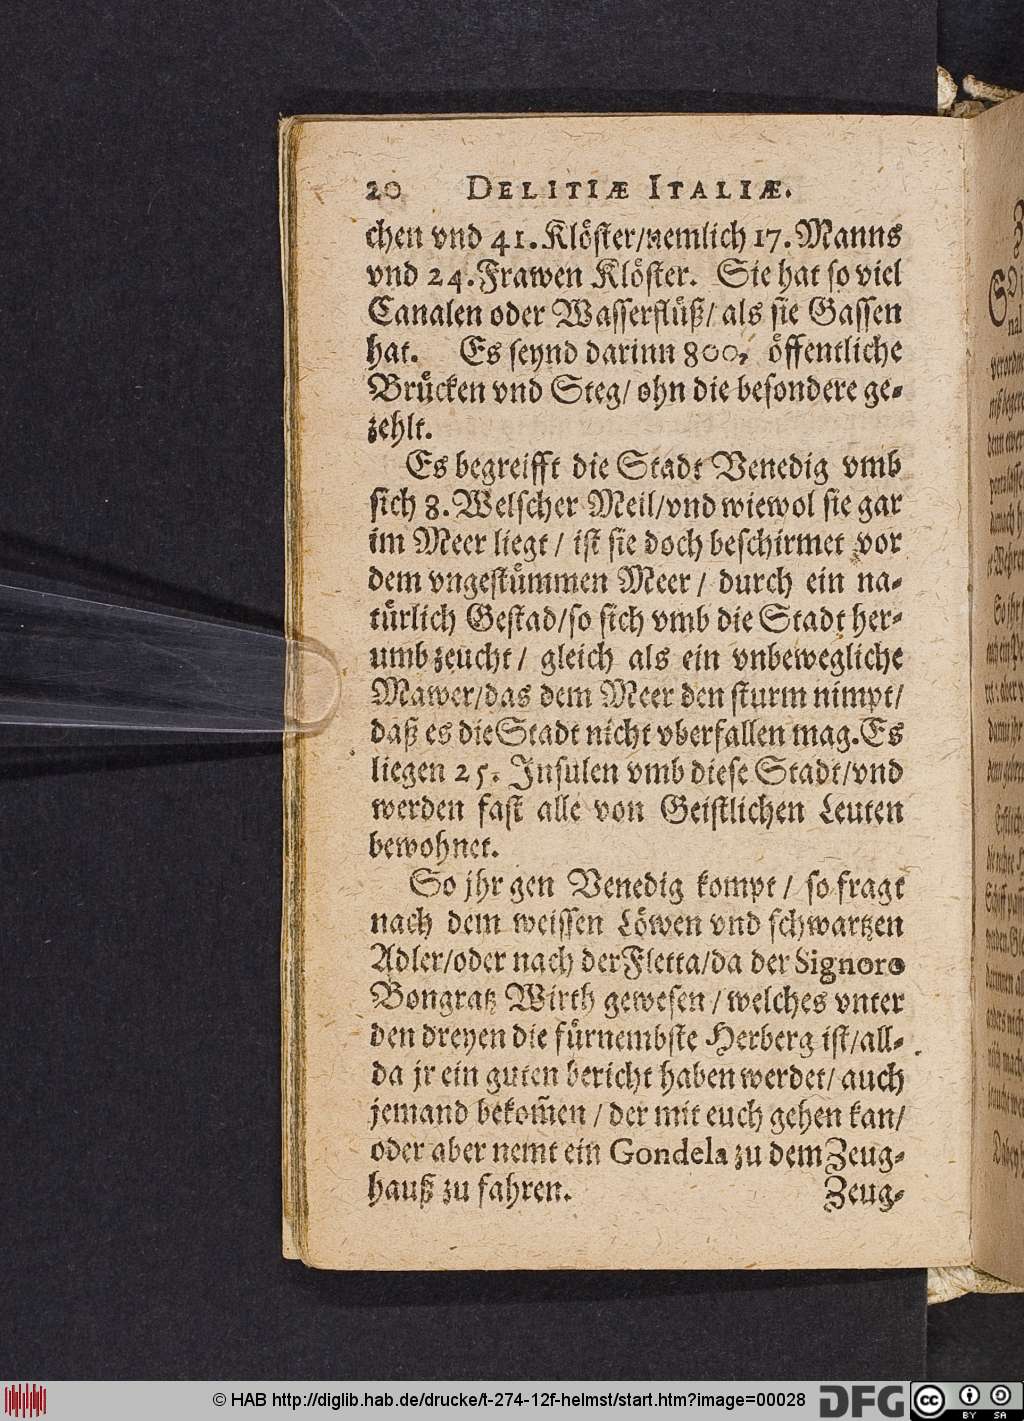 20 DELITIÆ ITALIÆ.
chen vnd 41. Klöster/nemlich 17. Manns
vnd 24. Frawen Klöster. Sie hat so viel
Canalen oder Wasserflüß/ als sie Gassen
hat. Es seynd darinn 800. öffentliche
Brücken vnd Steg/ ohn die besondere ge-
zehlt.
Es begreifft die Stadt Venedig vmb
sich 8. Welscher Meil/vnd wiewol sie gar
im Meer liegt / ist sie doch beschirmet vor
dem vngestümmen Meer / durch ein na-
türlich Gestad/so sich vmb die Stadt her-
umb zeucht / gleich als ein vnbewegliche
Mawer/das dem Meer den sturm nimpt/
daß es die Stadt nicht vberfallen mag. Es
liegen 25. Insulen vmb diese Stadt/vnd
werden fast alle von Geistlichen Leuten
bewohnet.
So jhr gen Venedig kompt / so fragt
nach dem weissen Löwen vnd schwartzen
Adler/oder nach der Fletta/da der Signoro
Bongratz Wirth gewesen / welches vnter
den dreyen die fürnembste Herberg ist/all-
da jr ein guten bericht haben werdet/ auch
jemand bekom̃en / der mit euch gehen kan/
oder aber nemt ein Gondela zu dem Zeug-
hauß zu fahren.
Zeug-
© HAB http://diglib.hab.de/drucke/t-274-12f-helmst/start.htm?image=00028
DFG
cc BY SA